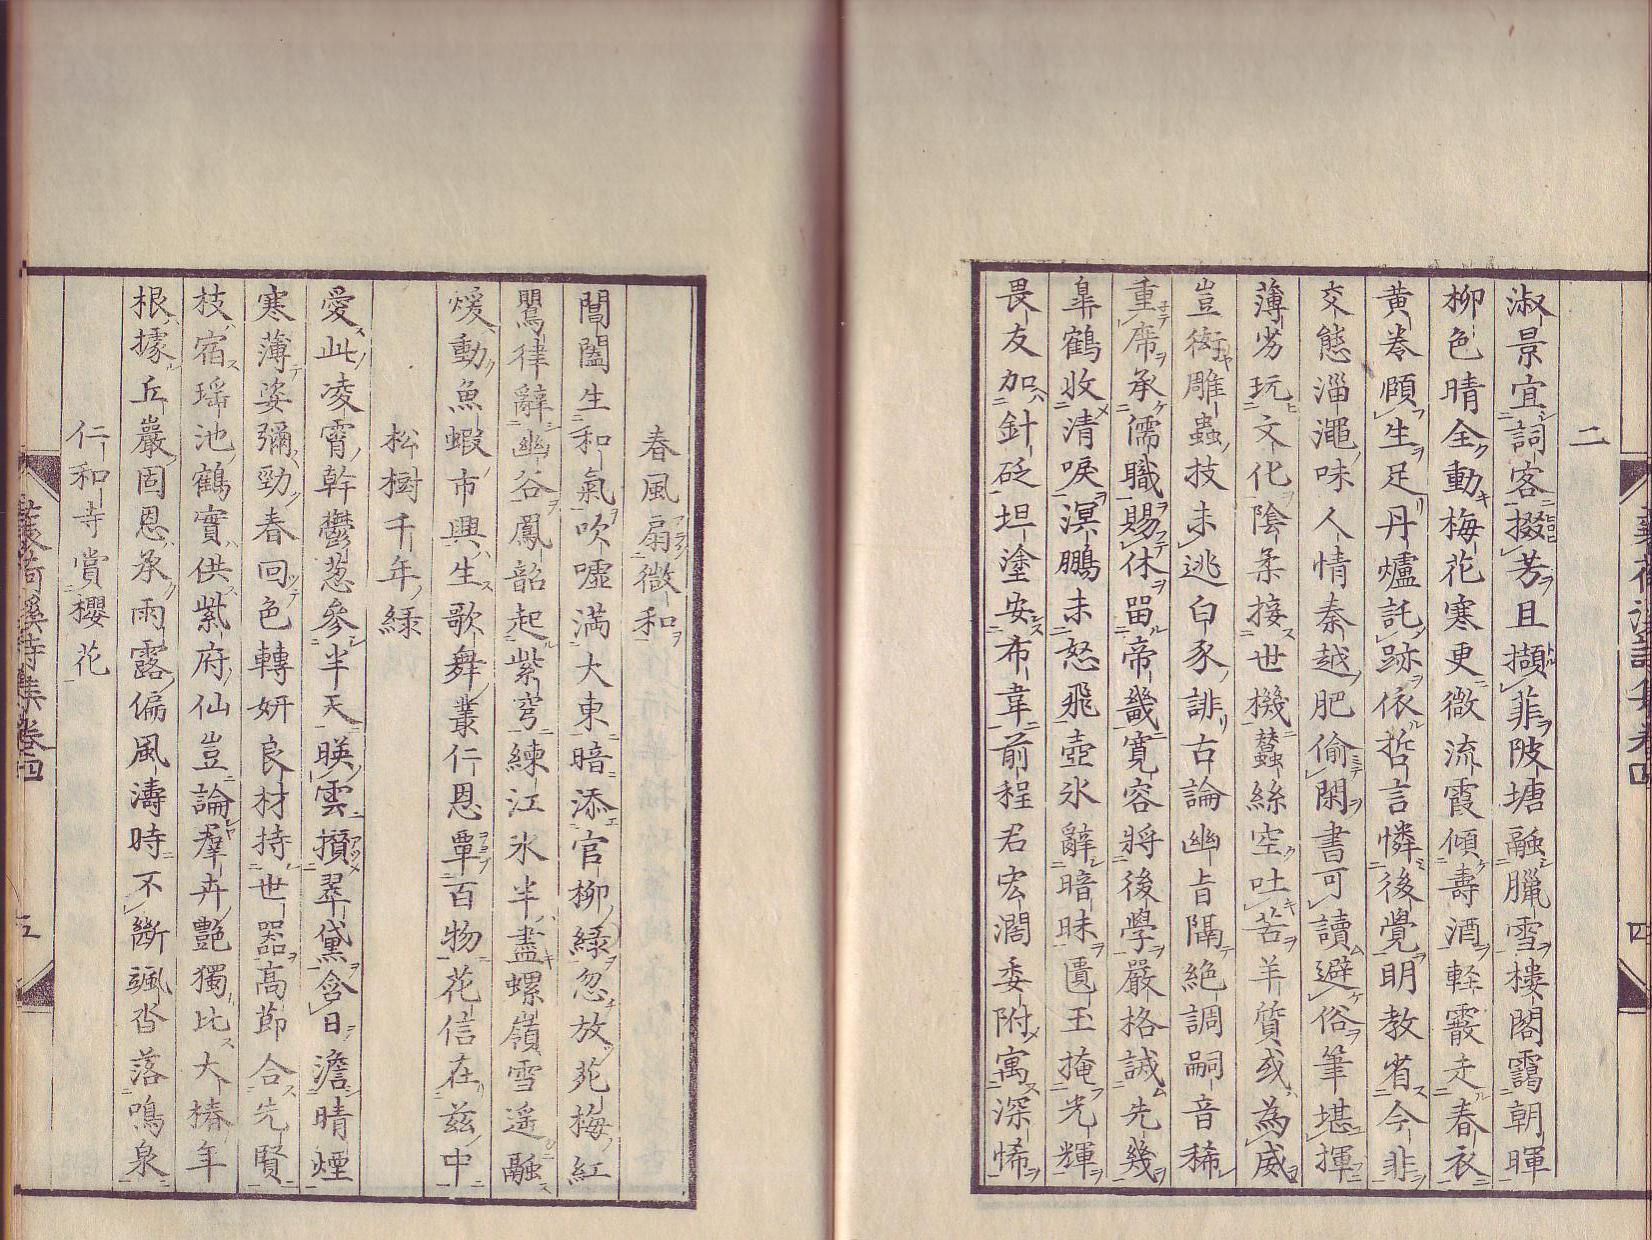 二
淑景宜詞客掇芳且擷菲陂塘融臘雪樓閣靄朝暉
柳色晴全動梅花寒更微流霞傾壽酒軽霰走春衣
黄巻頤生足丹爐託跡依哲言憐後覺明教省今非
交態淄澠味人情秦越肥偷閑書可讀避俗筆堪揮
薄劣玩文化陰柔接世機蠶絲空吐苦羊質或為威
豈衒雕蟲技未逃白豕誹古論幽旨隔絶調嗣音稀
重席承儒職賜休畱帝畿寛容將後學嚴格誠先幾
皐鶴收清唳溟鵬未怒飛壺氷辭暗昧匱玉掩光輝
畏友加針砭坦塗安布韋前程君宏濶委附寓深悕
春風扇微和
閶闔生和氣吹嘘満大東暗添官柳緑忽放苑梅紅
鸎律辭幽谷鳳韶起紫穹練江氷半盡螺嶺雪遥融
煖動魚蝦市興生歌舞叢仁恩覃百物花信在兹中
松樹千年緑
愛此凌霄幹鬱葱參半天暎雲攢翠黛含日澹晴煙
寒薄姿彌勁春回色轉妍良材持世器高節合先賢
枝宿瑶池鶴實供紫府仙豈論羣卉艶獨比大椿年
根據丘巖固恩承雨露偏風濤時不斷颯沓落鳴泉
仁和寺賞櫻花
蓑荷溪詩集巻四
五